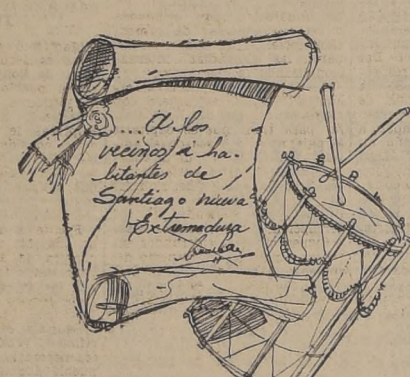 ...A los
vecinos, á ha-
bitantes de
Santiago nueva
Extremadura